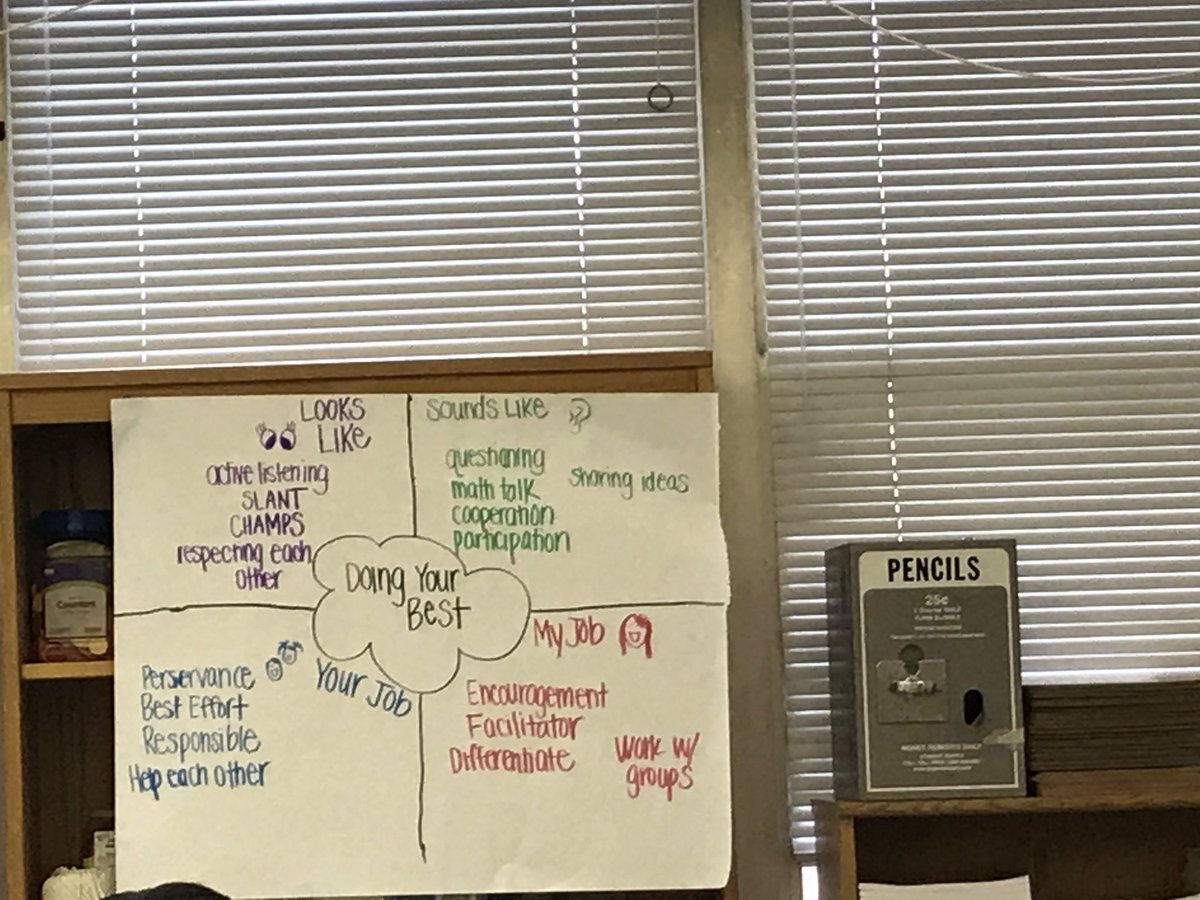 LOOKS
LIKE
active listening
SLANT
CHAMPS
respecting each
other
Sounds Like
questioning
math talk
cooperation
participation
sharing ideas
Doing Your
Best
Your Job
Perservance
Best Effort
Responsible
Help each other
My Job
Encouragement
Facilitator
Differentiate
Work w/
groups
Counters
PENCILS
25¢